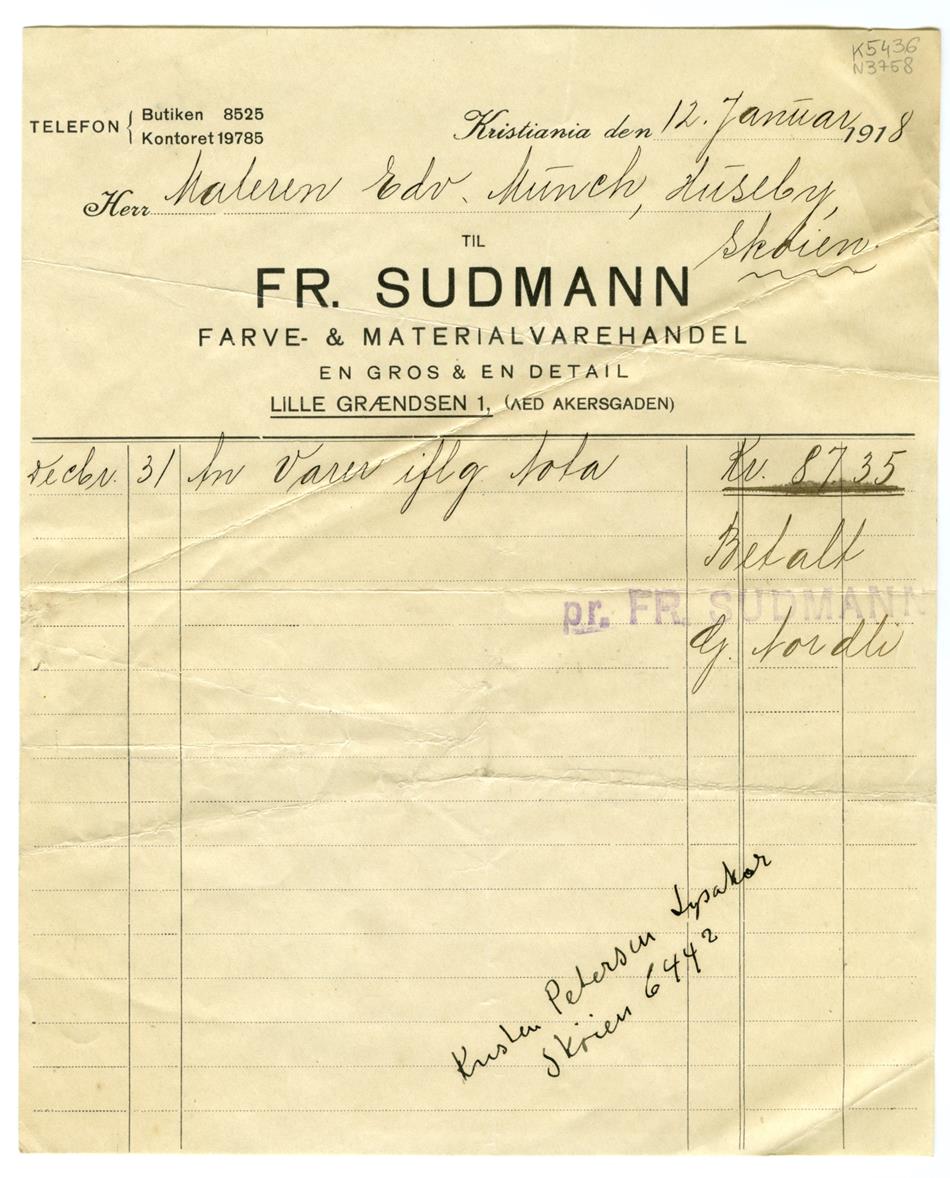 K5436
N3758
TELEFON { Butiken 8525
Kontoret 19785
Kristiania den 12. Januar 1918
Herr Maleren Edv. Munch, Huseby,
Skøien.
TIL
FR. SUDMANN
FARVE- & MATERIALVAREHANDEL
EN GROS & EN DETAIL
LILLE GRÆNDSEN 1, (VED AKERSGADEN)
Decbr. 31 An Varer iflg Nota Kr. 87.35
Betalt
pr. FR. SUDMANN
G. Nordli
Kristen Petersen Lysaker
Skøien 6442